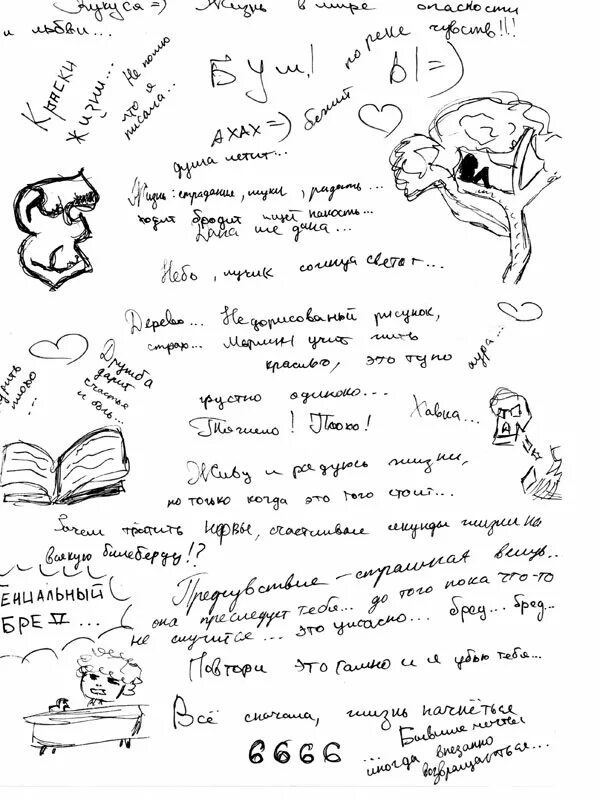 Кукуса =) Жизнь в мире опасности
и любви...
по реке чувств!!!
Краски
жизни...
Не помню
что я
писала...
Бум!
Ы =)
АХАХ =)
бежит
душа летит...
Жизнь: страдание, муки, радость...
ходит бродит ищет
Небо, лучик солнца светит...
Дерево... Недорисованый рисунок,
страх... Мерлин учит жить
красиво, это тупо
аура...
Дружба
дарит
счастье
и боль...
Курить
плохо
...
грустно одиноко...
Тяжело! Плохо!
Хавка...
Живу и радуюсь жизни,
но только когда это того стоит...
Зачем тратить нервы, счастливые секунды жизни на
всякую билеберду!?
ГЕНИАЛЬНЫЙ
БРЕД...
Предчувствие - страшная вещь..
она преследует тебя... до того пока что-то
не случится... это ужасно... бред... бред...
Повтори это и я убью тебя...
Всё сначала, жизнь начнёться
6666
Бывшие мечты
...иногда внезапно
возвращаються...